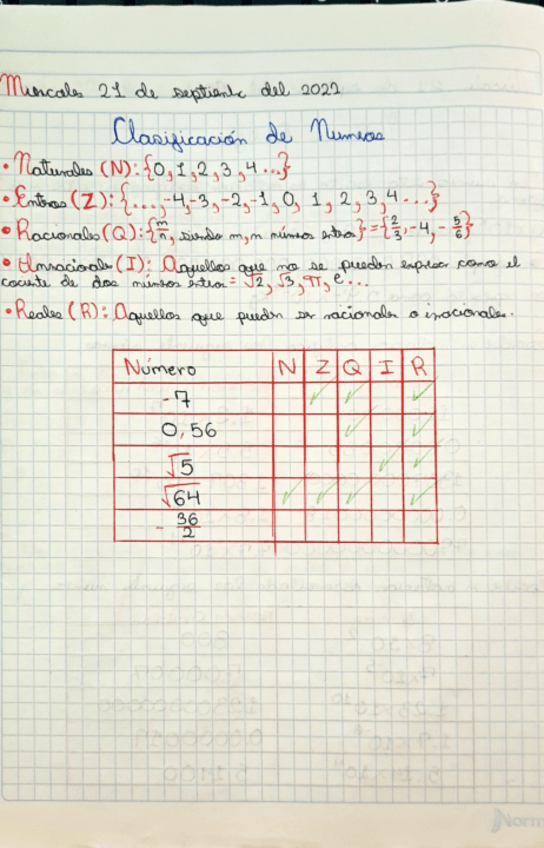 Miercoles 21 de septiembre del 2022
Clasificación de Numeros
• Naturales (N): {0, 1, 2, 3, 4 ...}
• Enteros (Z): {..., -4, -3, -2, -1, 0, 1, 2, 3, 4 ...}
• Racionales (Q): {m/n, siendo m, n números enteros} = {2/3, -4, -5/6}
• Irracionales (I): Aquellos que no se pueden expresar como el
cociente de dos números enteros = √2, √3, π, e ...
• Reales (R): Aquellos que pueden ser racionales o irracionales.
Número N Z Q I R
-7 ✓ ✓ ✓
0,56 ✓ ✓
√5 ✓ ✓
√64 ✓ ✓ ✓ ✓
- 36/2
Norm